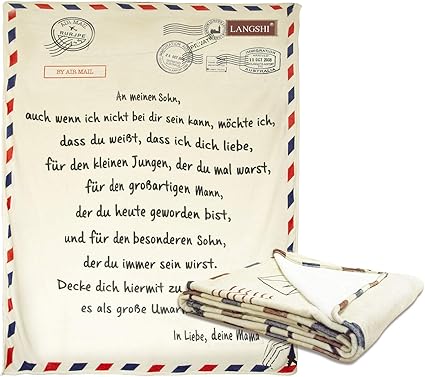 AIR MAIL
LANGSHI
IMMIGRATION
10 OCT 2008
AUSTRALIA
BY AIR MAIL
An meinen Sohn,
auch wenn ich nicht bei dir sein kann, möchte ich,
dass du weißt, dass ich dich liebe,
für den kleinen Jungen, der du mal warst,
für den großartigen Mann,
der du heute geworden bist,
und für den besonderen Sohn,
der du immer sein wirst.
Decke dich hiermit zu
es als große Umar
In Liebe, deine Mama